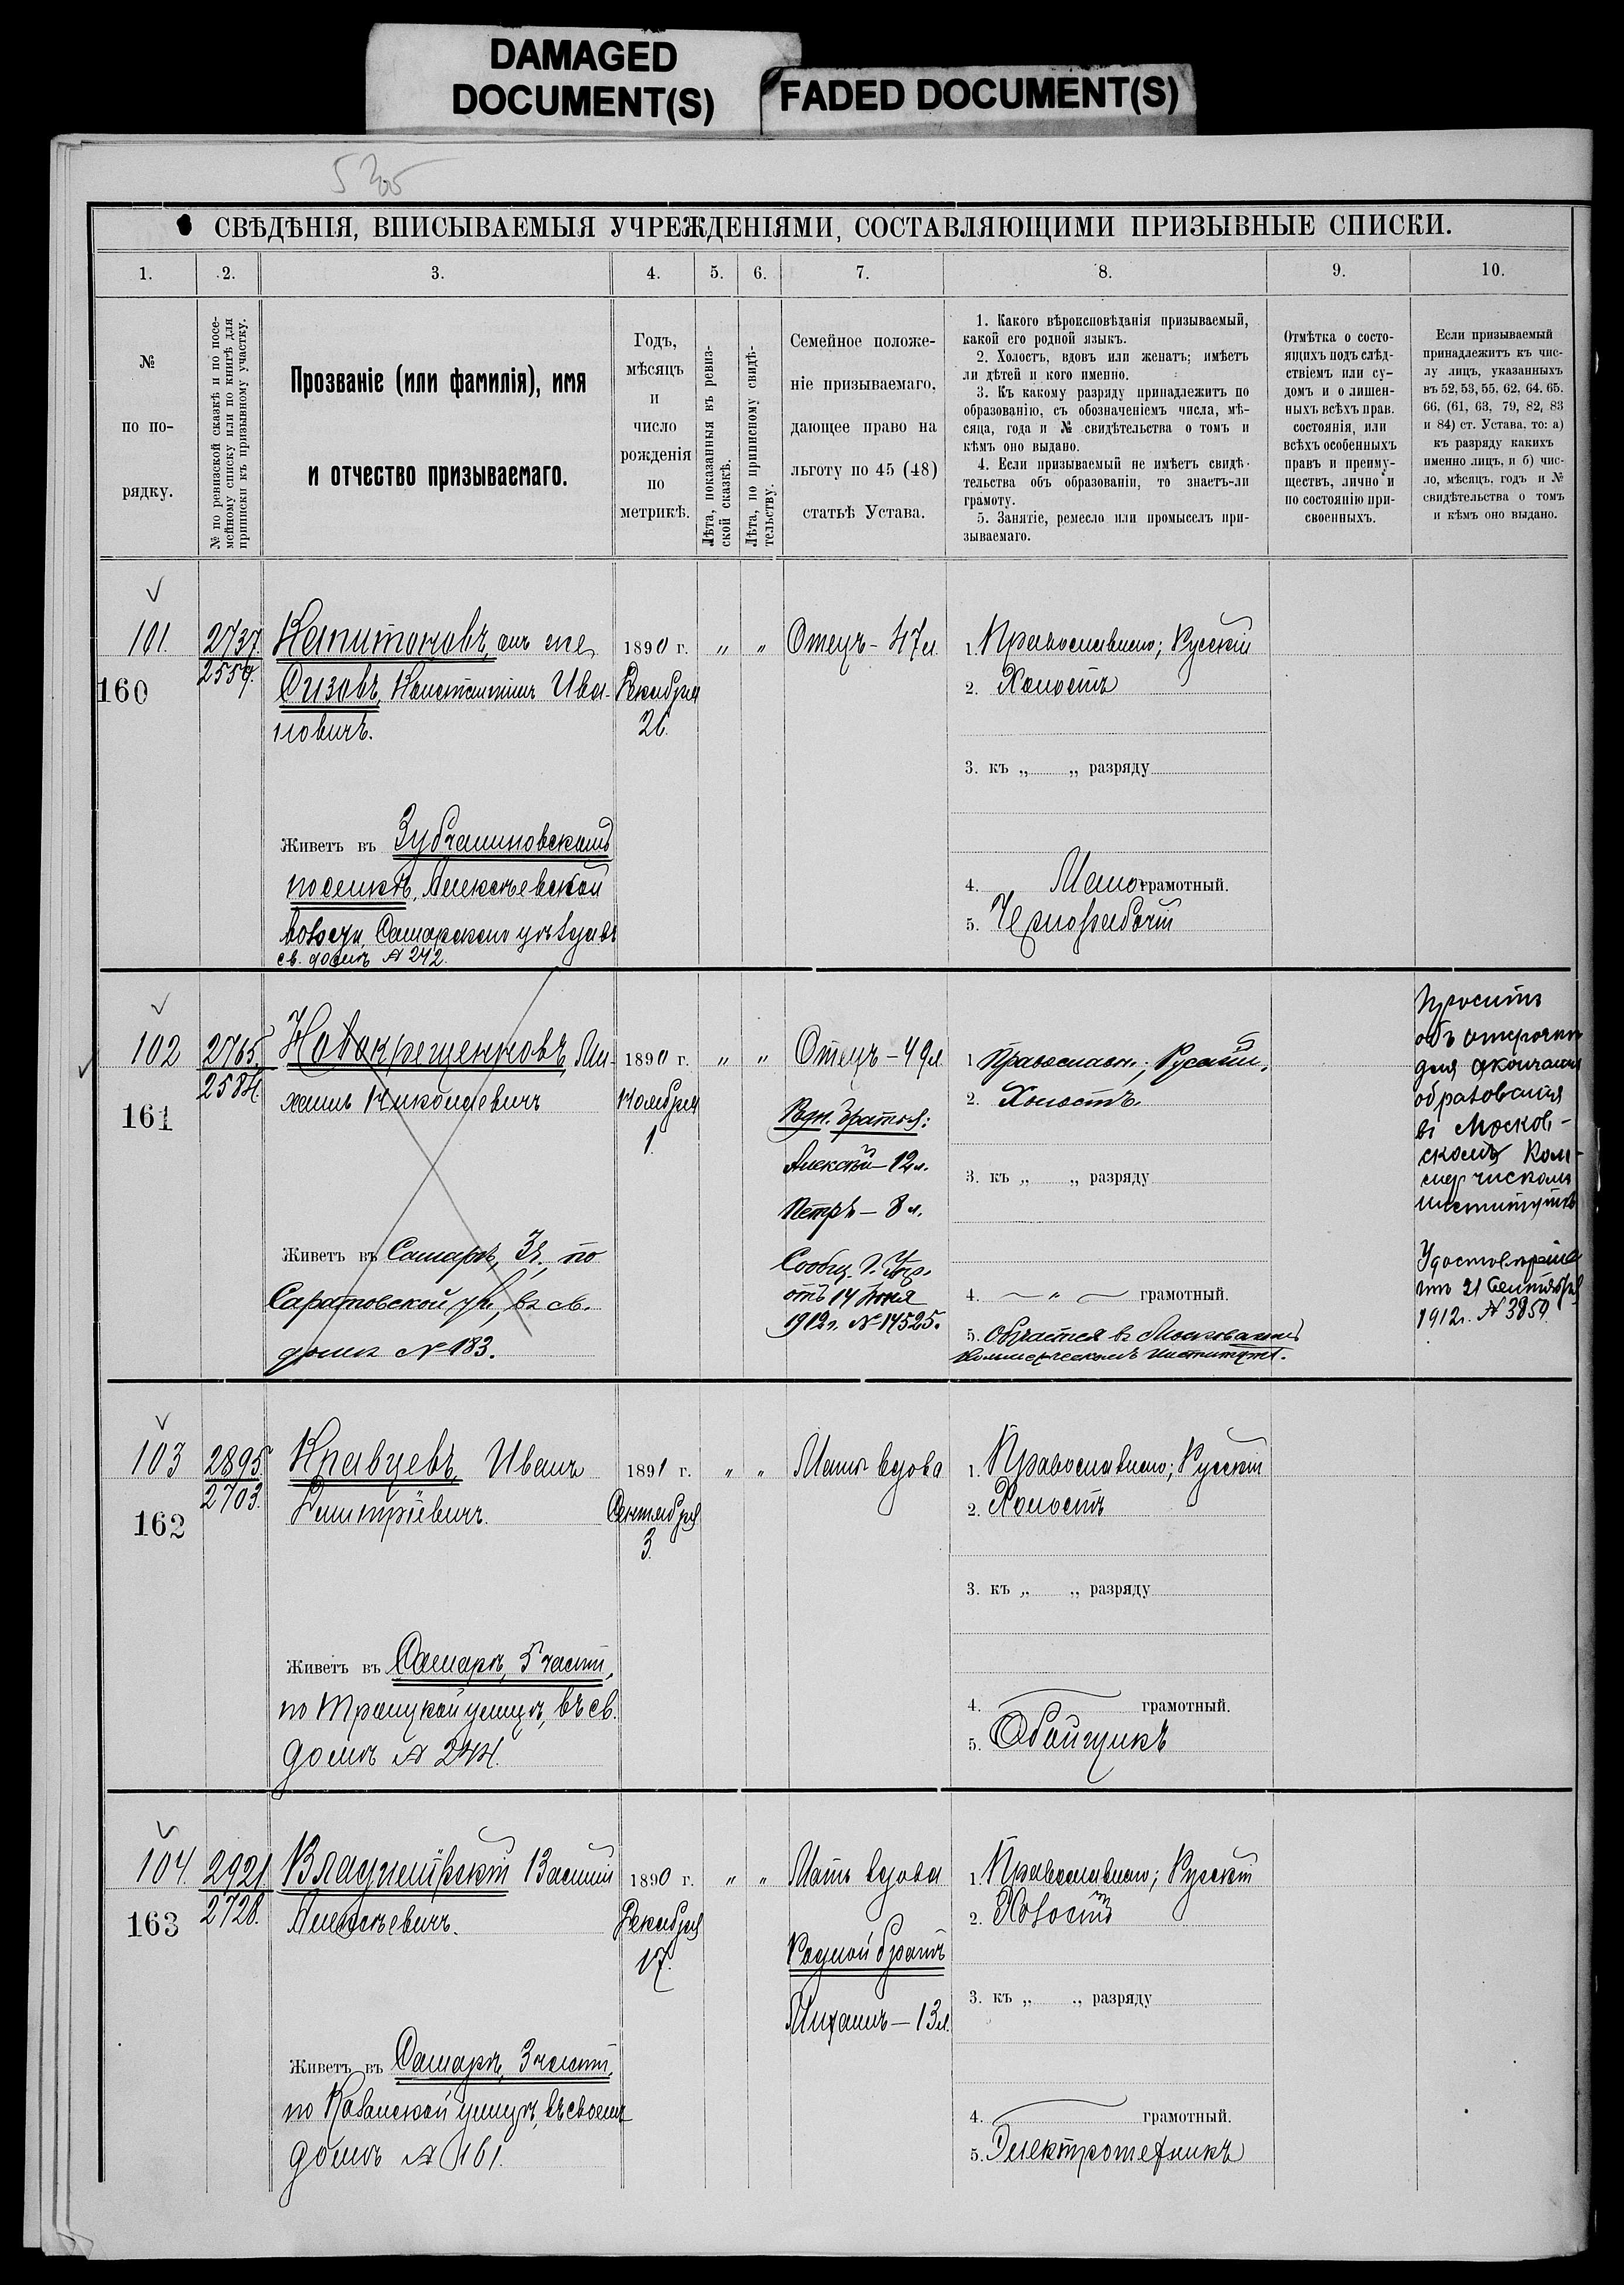 DAMAGED
DOCUMENT(S)
FADED DOCUMENT(S)
СВѢДѢНІЯ, ВПИСЫВАЕМЫЯ УЧРЕЖДЕНІЯМИ, СОСТАВЛЯЮЩИМИ ПРИЗЫВНЫЕ СПИСКИ.
1. 2. 3. 4. 5. 6. 7. 8. 9. 10.
№
по по-
рядку.
№ по ревизской сказкѣ и по посе-
мейному списку или по книгѣ для
приписки къ призывному участку.
Прозваніе (или фамилія), имя
и отчество призываемаго.
Годъ,
мѣсяцъ
и
число
рожденія
по
метрикѣ.
Лѣта, показанныя въ ревиз-
ской сказкѣ.
Лѣта, по приписному свидѣ-
тельству.
Семейное положе-
ніе призываемаго,
дающее право на
льготу по 45 (48)
статьѣ Устава.
1. Какого вѣроисповѣданія призываемый,
какой его родной языкъ.
2. Холостъ, вдовъ или женатъ; имѣетъ
ли дѣтей и кого именно.
3. Къ какому разряду принадлежитъ по
образованію, съ обозначеніемъ числа, мѣ-
сяца, года и № свидѣтельства о томъ и
кѣмъ оно выдано.
4. Если призываемый не имѣетъ свидѣ-
тельства объ образованіи, то знаетъ-ли
грамоту.
5. Занятіе, ремесло или промыселъ при-
зываемаго.
Отмѣтка о состо-
ящихъ подъ слѣд-
ствіемъ или су-
домъ и о лишен-
ныхъ всѣхъ прав.
состоянія, или
всѣхъ особенныхъ
правъ и преиму-
ществъ, лично и
по состоянію при-
своенныхъ.
Если призываемый
принадлежитъ къ чис-
лу лицъ, указанныхъ
въ 52, 53, 55, 62, 64. 65.
66, (61, 63, 79, 82, 83
и 84) ст. Устава, то: а)
къ разряду какихъ
именно лицъ, и б) чис-
ло, мѣсяцъ, годъ и №
свидѣтельства о томъ
и кѣмъ оно выдано.
101.
160
2737.
2559.
Капитоновъ, онъ же
Сизовъ, Константинъ Ива-
новичъ.
Живетъ въ Зубчаниновскомъ
поселкѣ, Алексѣевской
волости, Самарскаго уѣзда въ
св. домѣ № 242.
1890 г.
Декабря
26.
„ „
Отецъ - 47 л.
1. Православнаго; Русскій
2. Холостъ
3. къ „ „ разряду
4. Малограмотный.
5. Чернорабочій
102
161
2765.
2584.
Новокрещенновъ, Ми-
хаилъ Николаевичъ
Живетъ въ Самарѣ, 3 ч., по
Саратовской ул., въ св.
домѣ № 183.
1890 г.
Ноября
1.
„ „
Отецъ - 49 л.
Родн. братья:
Алексѣй - 12 л.
Петръ - 8 л.
Сообщ. Г. Упр.
отъ 14 Июня
1912 г. № 17525.
1. Православн.; Русскій.
2. Холостъ.
3. къ „ „ разряду
4. „ грамотный.
5. Обучается въ Московскомъ
Коммерческомъ институтѣ.
Проситъ
объ отсрочкѣ
для окончанія
образованія
въ Москов-
скомъ Ком-
мерческомъ
институтѣ
Удостовѣреніе
отъ 21 Сентября
1912 г. № 3859.
103
162
2895.
2703.
Кравцевъ Иванъ
Димитріевичъ.
Живетъ въ Самарѣ, 5 части,
по Троицкой улицѣ, въ св.
домѣ № 244.
1891 г.
Сентября
3.
„ „
Мать вдова
1. Православнаго; Русскій
2. Холостъ
3. къ „ „ разряду
4. грамотный.
5. Обойщикъ
104.
163
2921
2728.
Василій
Алексѣевичъ.
Живетъ въ Самарѣ, 3 части,
по Казанской улицѣ, въ своемъ
домѣ № 161.
1890 г.
Декабря
17.
„ „
Мать вдова
Родной братъ
Михаилъ - 13 л.
1. Православнаго; Русскій
2. Холостъ
3. къ „ „ разряду
4. грамотный.
5. Электротехникъ